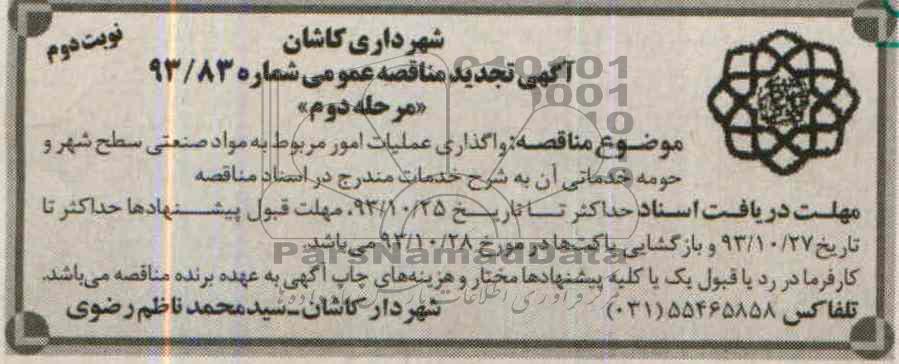 نوبت دوم
شهرداری کاشان
آگهی تجدید مناقصه عمومی شماره ۹۳/۸۳
«مرحله دوم»
موضوع مناقصه: واگذاری عملیات امور مربوط به مواد صنعتی سطح شهر و
حومه خدماتی آن به شرح خدمات مندرج در اسناد مناقصه
مهلت دریافت اسناد حداکثر تا تاریخ ۹۳/۱۰/۲۵، مهلت قبول پیشنهادها حداکثر تا
تاریخ ۹۳/۱۰/۲۷ و بازگشایی پاکت‌ها در مورخ ۹۳/۱۰/۲۸ می‌باشد.
کارفرما در رد یا قبول یک یا کلیه پیشنهادها مختار و هزینه‌های چاپ آگهی به عهده برنده مناقصه می‌باشد.
تلفاکس ۵۵۴۶۵۸۵۸ (۰۳۱)
شهردار کاشان-سیدمحمد ناظم رضوی
ParsNamadData